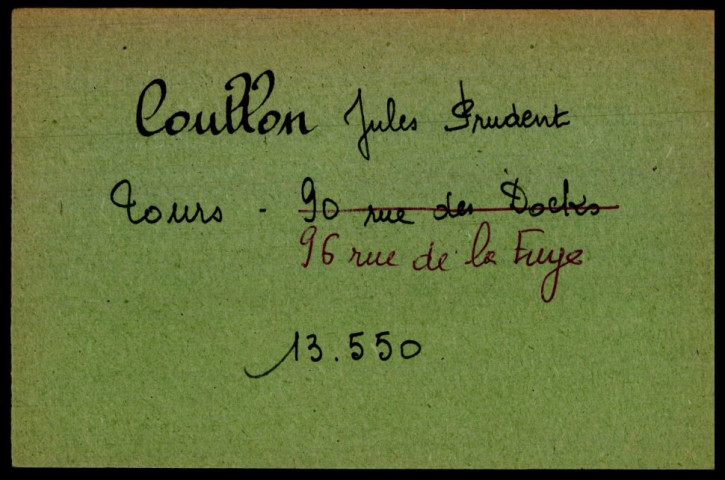 Coullon Jules Prudent
Tours - 90 rue des Docks
96 rue de la Fuye
13.550